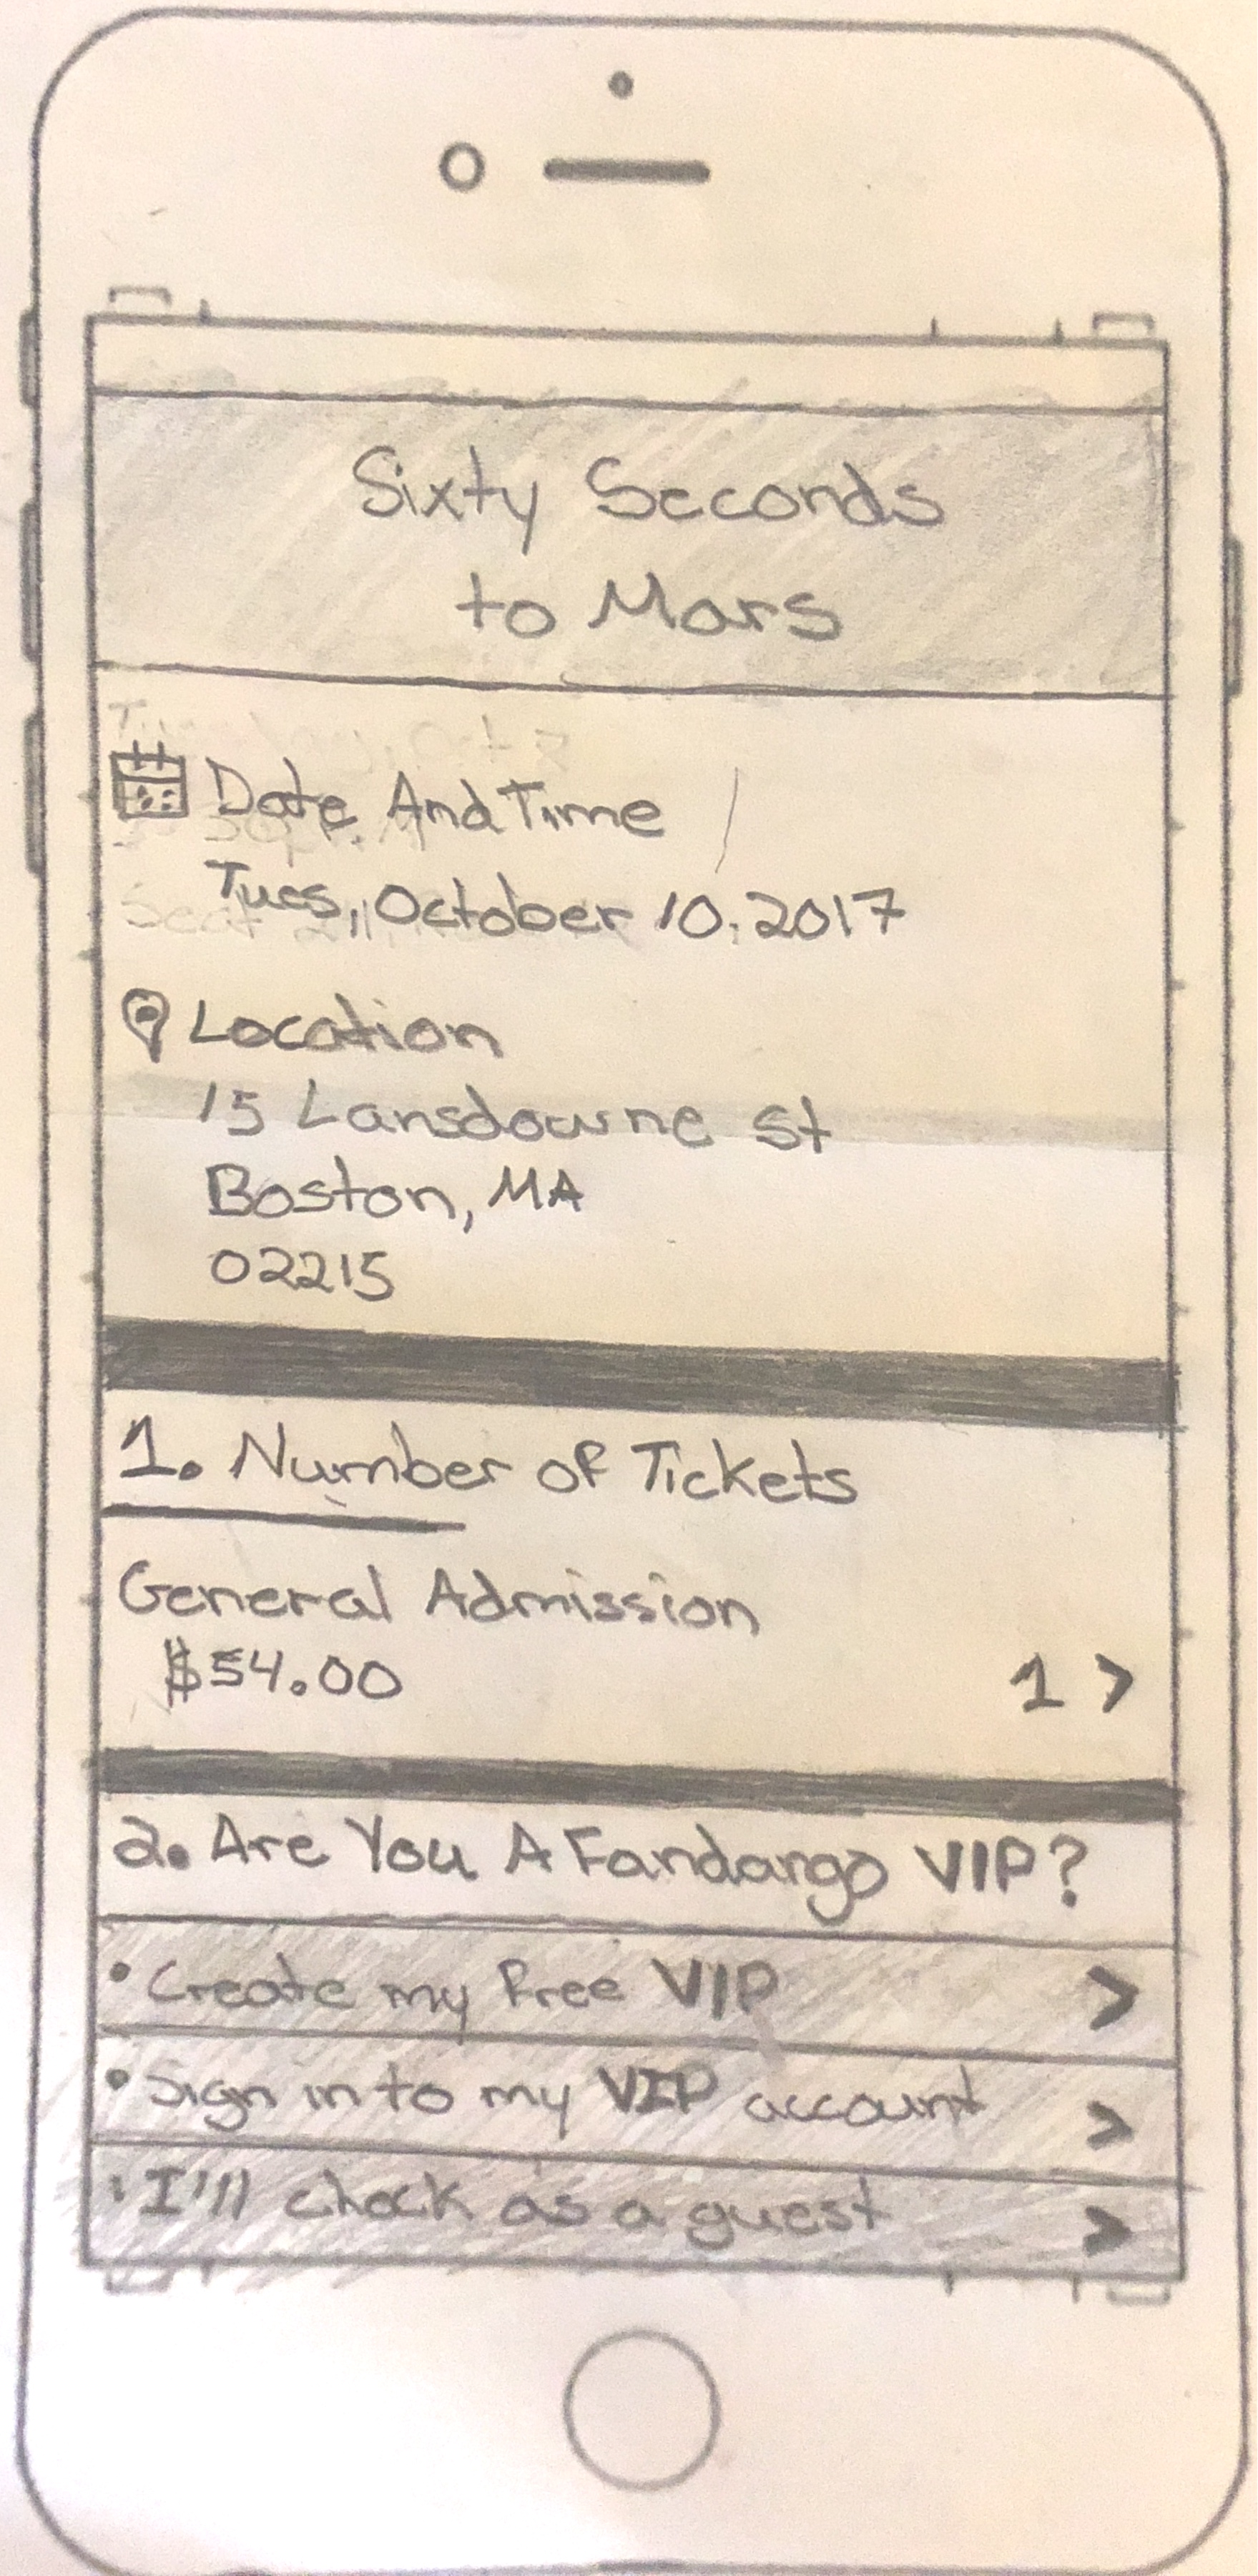 Sixty Seconds
to Mars
Date And Time
Tues, October 10, 2017
Location
15 Lansdowne St
Boston, MA
02215
1. Number of Tickets
General Admission
$54.00
1 >
2. Are You A Fandango VIP?
• Create my free VIP >
• Sign in to my VIP account >
• I'll check as a guest >